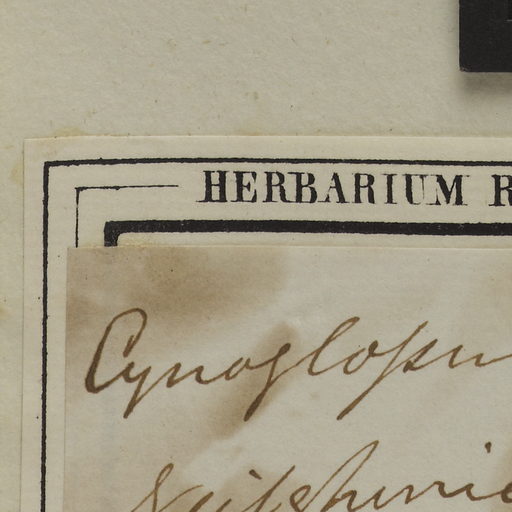 HERBARIUM R
Cynoglossu